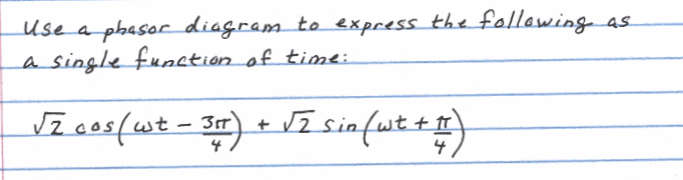 Use a phasor diagram to express the following as
a single function of time:
√2 cos(ωt - 3π/4) + √2 sin(ωt + π/4)